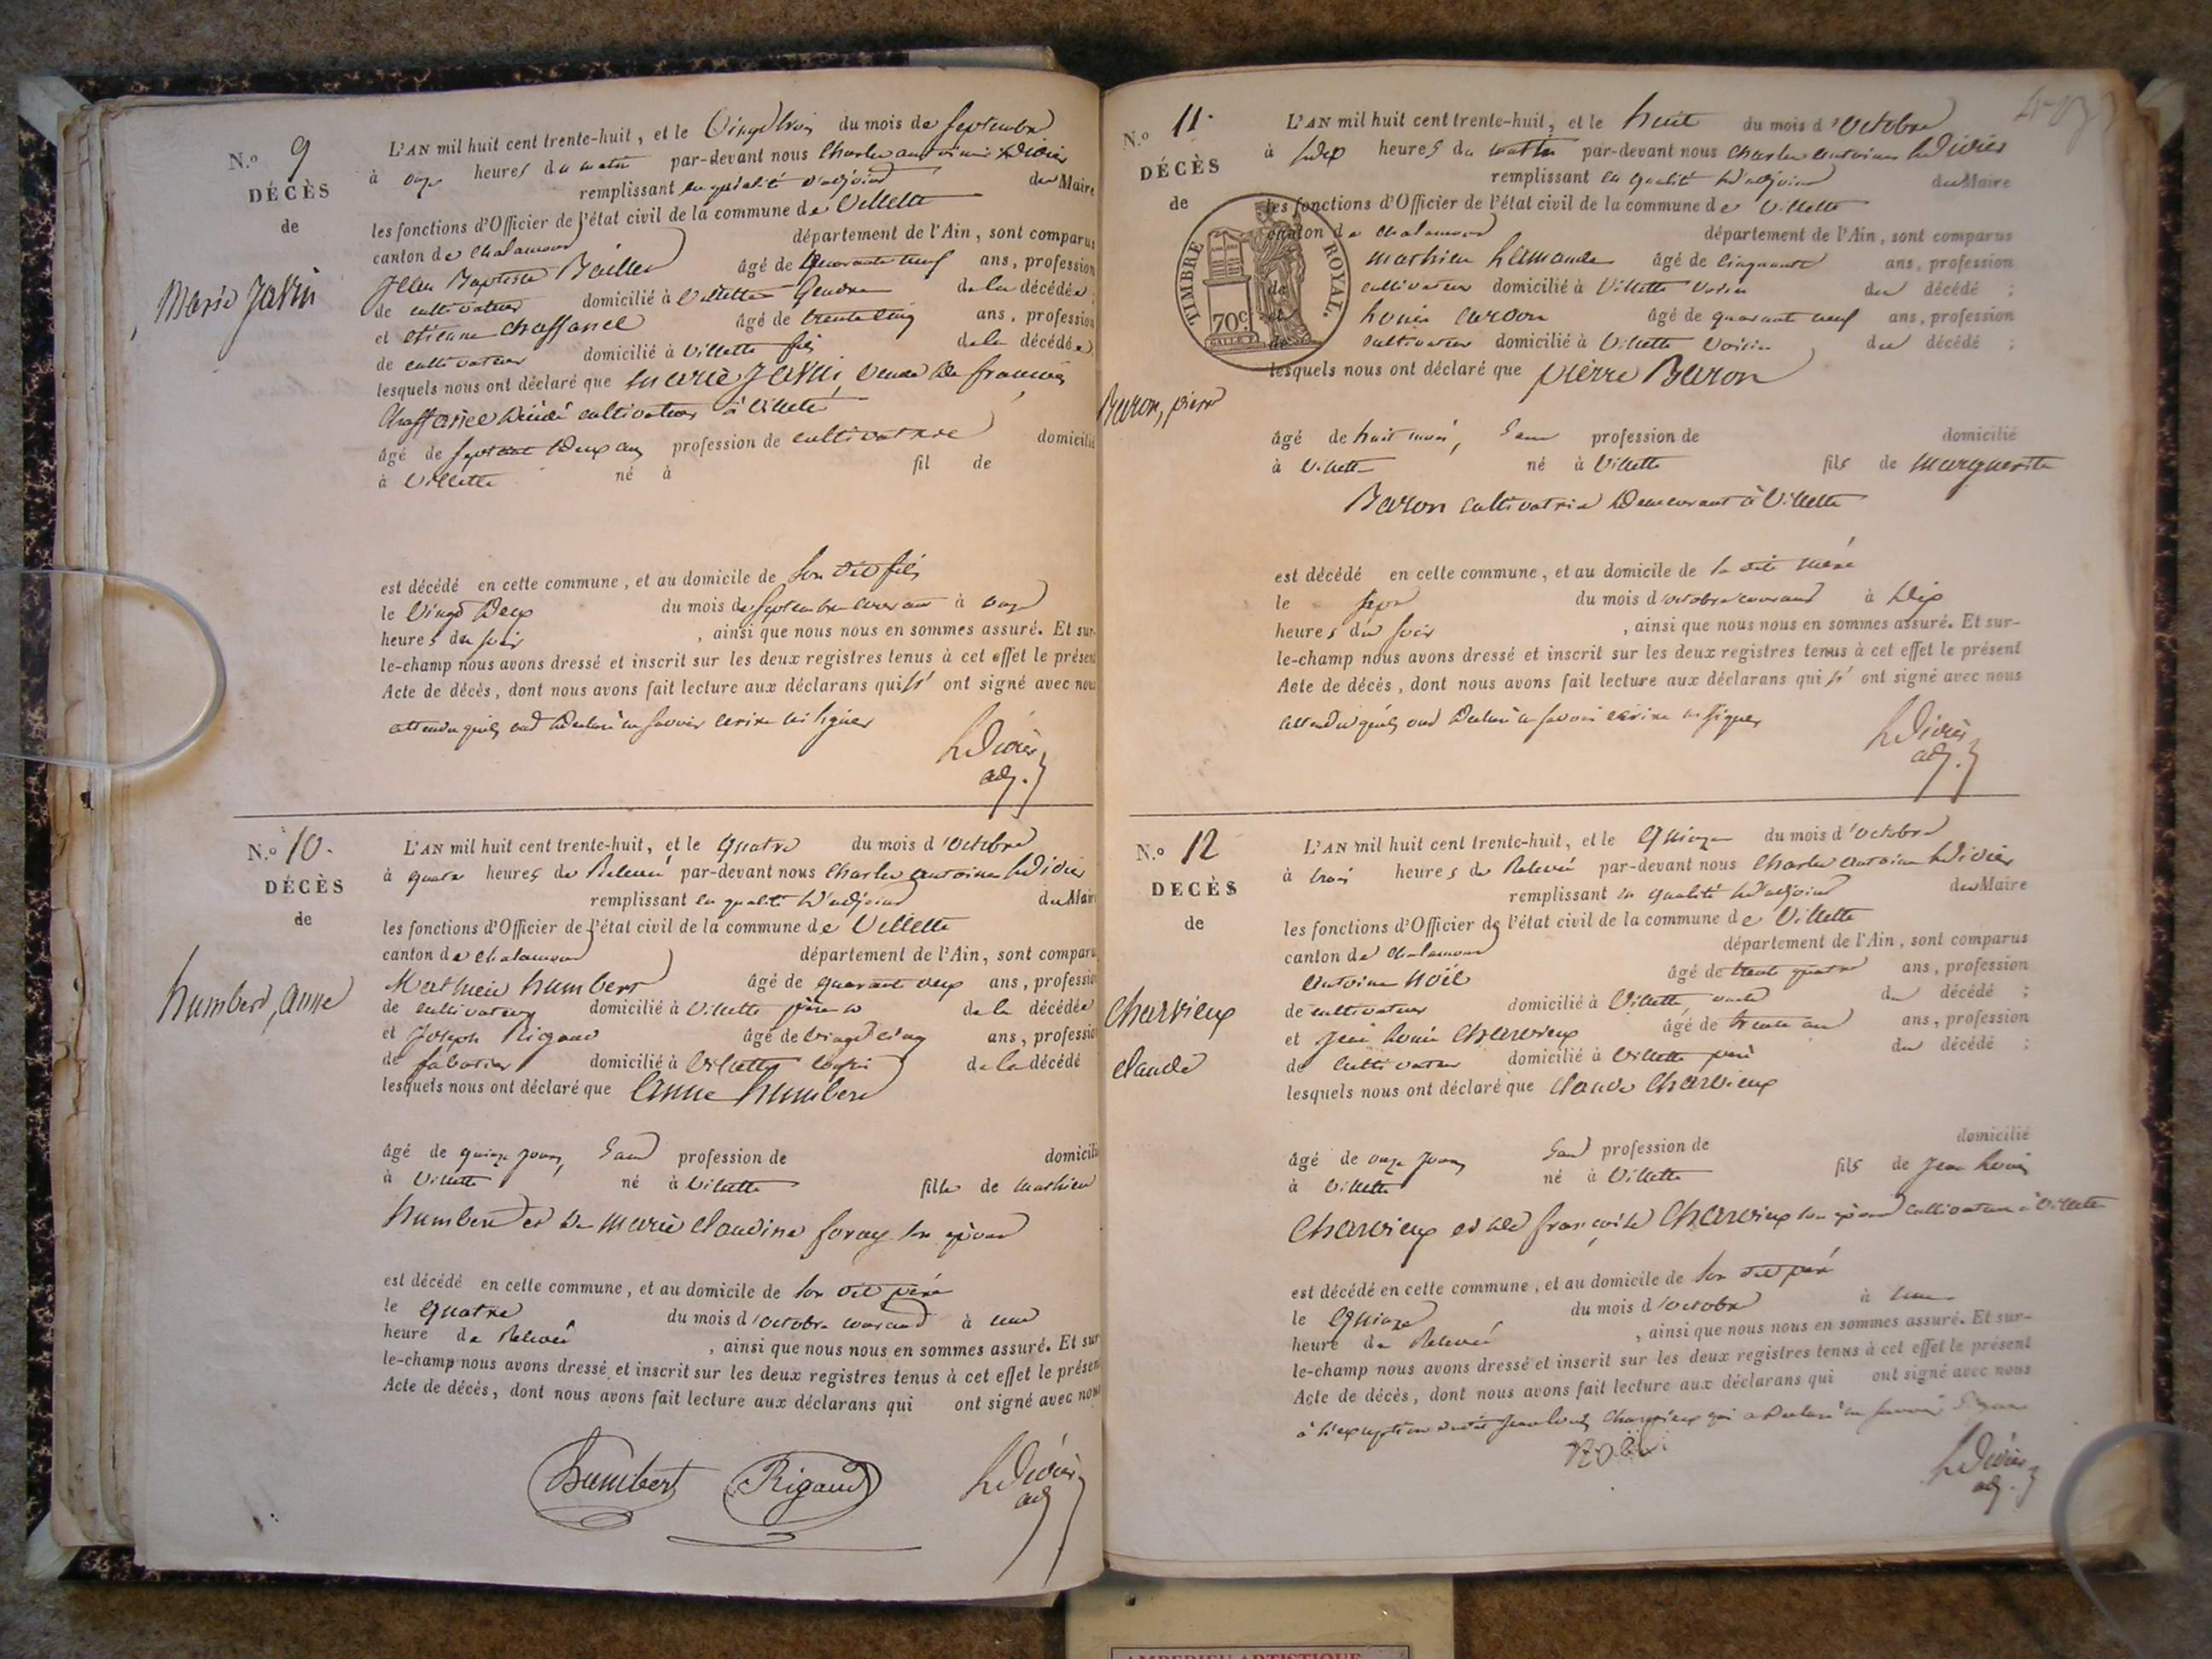 N.º 9
DÉCÈS
de
Marie Javin
L'AN mil huit cent trente-huit, et le Vingt trois du mois de Septembre
à onze heures du matin par-devant nous Charles antoine Didier
remplissant en qualité d'adjoint du Maire
les fonctions d'Officier de l'état civil de la commune de Villette
canton de chalamont département de l'Ain, sont comparus
Jean Baptiste âgé de quarante neuf ans, profession
de cultivateur domicilié à Villette Gendre de la décédée ;
et etienne Chaffanel âgé de trente cinq ans, profession
de cultivateur domicilié à Villette fils de la décédée ;
lesquels nous ont déclaré que marie Javin, veuve de françois
Chaffanel cultivateur à Villette
âgé de septante deux ans profession de cultivatrice domicilié
à Villette né à fil de
est décédé en cette commune, et au domicile de son dit fils
le Vingt Deux du mois de septembre courant à onze
heures du soir , ainsi que nous nous en sommes assuré. Et sur-
le-champ nous avons dressé et inscrit sur les deux registres tenus à cet effet le présent
Acte de décès, dont nous avons fait lecture aux déclarans qui n' ont signé avec nous
attendu qu'ils ont déclaré ne savoir écrire ni signer
Didier
adj.
N.º 10.
DÉCÈS
de
humbert, anne
L'AN mil huit cent trente-huit, et le quatre du mois d'octobre
à quatre heures de Relevée par-devant nous Charles antoine Didier
remplissant en qualité d'adjoint du Maire
les fonctions d'Officier de l'état civil de la commune de Villette
canton de chalamont département de l'Ain, sont comparus
Mathieu humbert âgé de quarante deux ans, profession
de cultivateur domicilié à Villette père de la décédée
et Joseph Rigaud âgé de vingt cinq ans, profession
de sabotier domicilié à Villette de la décédé
lesquels nous ont déclaré que anne humbert
âgé de quinze jours, sans profession de domicilié
à Villette né à Villette fille de mathieu
humbert et de marie claudine foray son épouse
est décédé en cette commune, et au domicile de son dit père
le quatre du mois d'octobre courant à une
heure de Relevée , ainsi que nous nous en sommes assuré. Et sur
le-champ nous avons dressé et inscrit sur les deux registres tenus à cet effet le présent
Acte de décès, dont nous avons fait lecture aux déclarans qui ont signé avec nous
humbert Rigaud Didier
adj
N.º 11.
DÉCÈS
de
Baron, pierre
TIMBRE ROYAL.
70c.
L'AN mil huit cent trente-huit, et le huit du mois d'octobre
à dix heures du matin par-devant nous Charles antoine Didier
remplissant en qualité d'adjoint du Maire
les fonctions d'Officier de l'état civil de la commune de Villette
canton de chalamont département de l'Ain, sont comparus
mathieu Lamande âgé de cinquante ans, profession
de cultivateur domicilié à Villette voisin du décédé ;
et Louis cardon âgé de quarante neuf ans, profession
de cultivateur domicilié à Villette voisin du décédé ;
lesquels nous ont déclaré que pierre Baron
âgé de huit mois, sans profession de domicilié
à Villette né à Villette fils de marguerite
Baron cultivatrice demeurant à Villette
est décédé en cette commune, et au domicile de sa dite mère
le sept du mois d'octobre courant à dix
heures du soir , ainsi que nous nous en sommes assuré. Et sur-
le-champ nous avons dressé et inscrit sur les deux registres tenus à cet effet le présent
Acte de décès, dont nous avons fait lecture aux déclarans qui n' ont signé avec nous
attendu qu'ils ont déclaré ne savoir écrire ni signer
Didier
adj.
N.º 12
DECÈS
de
Charvieux
claude
L'AN mil huit cent trente-huit, et le quinze du mois d'octobre
à trois heures de Relevée par-devant nous Charles antoine Didier
remplissant en qualité d'adjoint du Maire
les fonctions d'Officier de l'état civil de la commune de Villette
canton de chalamont département de l'Ain, sont comparus
antoine Noël âgé de trente quatre ans, profession
de cultivateur domicilié à Villette, oncle du décédé ;
et jean louis Charvieux âgé de trente ans, profession
de cultivateur domicilié à Villette père du décédé ;
lesquels nous ont déclaré que claude Charvieux
âgé de onze jours sans profession de domicilié
à Villette né à Villette fils de jean louis
Charvieux et de françoise Charvieux son épouse cultivateur à Villette
est décédé en cette commune, et au domicile de son dit père
le quinze du mois d'octobre à une
heure de Relevée , ainsi que nous nous en sommes assuré. Et sur-
le-champ nous avons dressé et inscrit sur les deux registres tenus à cet effet le présent
Acte de décès, dont nous avons fait lecture aux déclarans qui ont signé avec nous
à l'exception jean louis Charvieux qui a déclaré ne savoir signer
Noël
Didier
adj.
AMBERIEU ARTISTIQUE